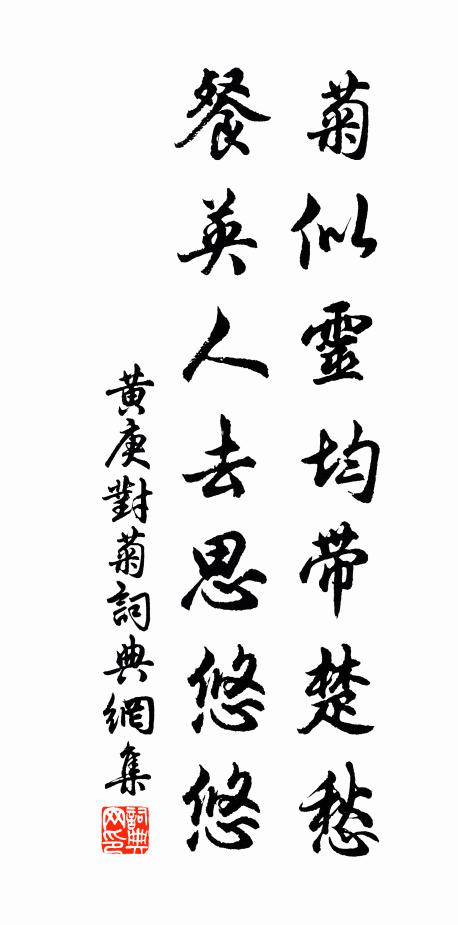 菊似靈均帶楚愁
餐英人去思悠悠
黃庚對菊詞典網集
詞典网印